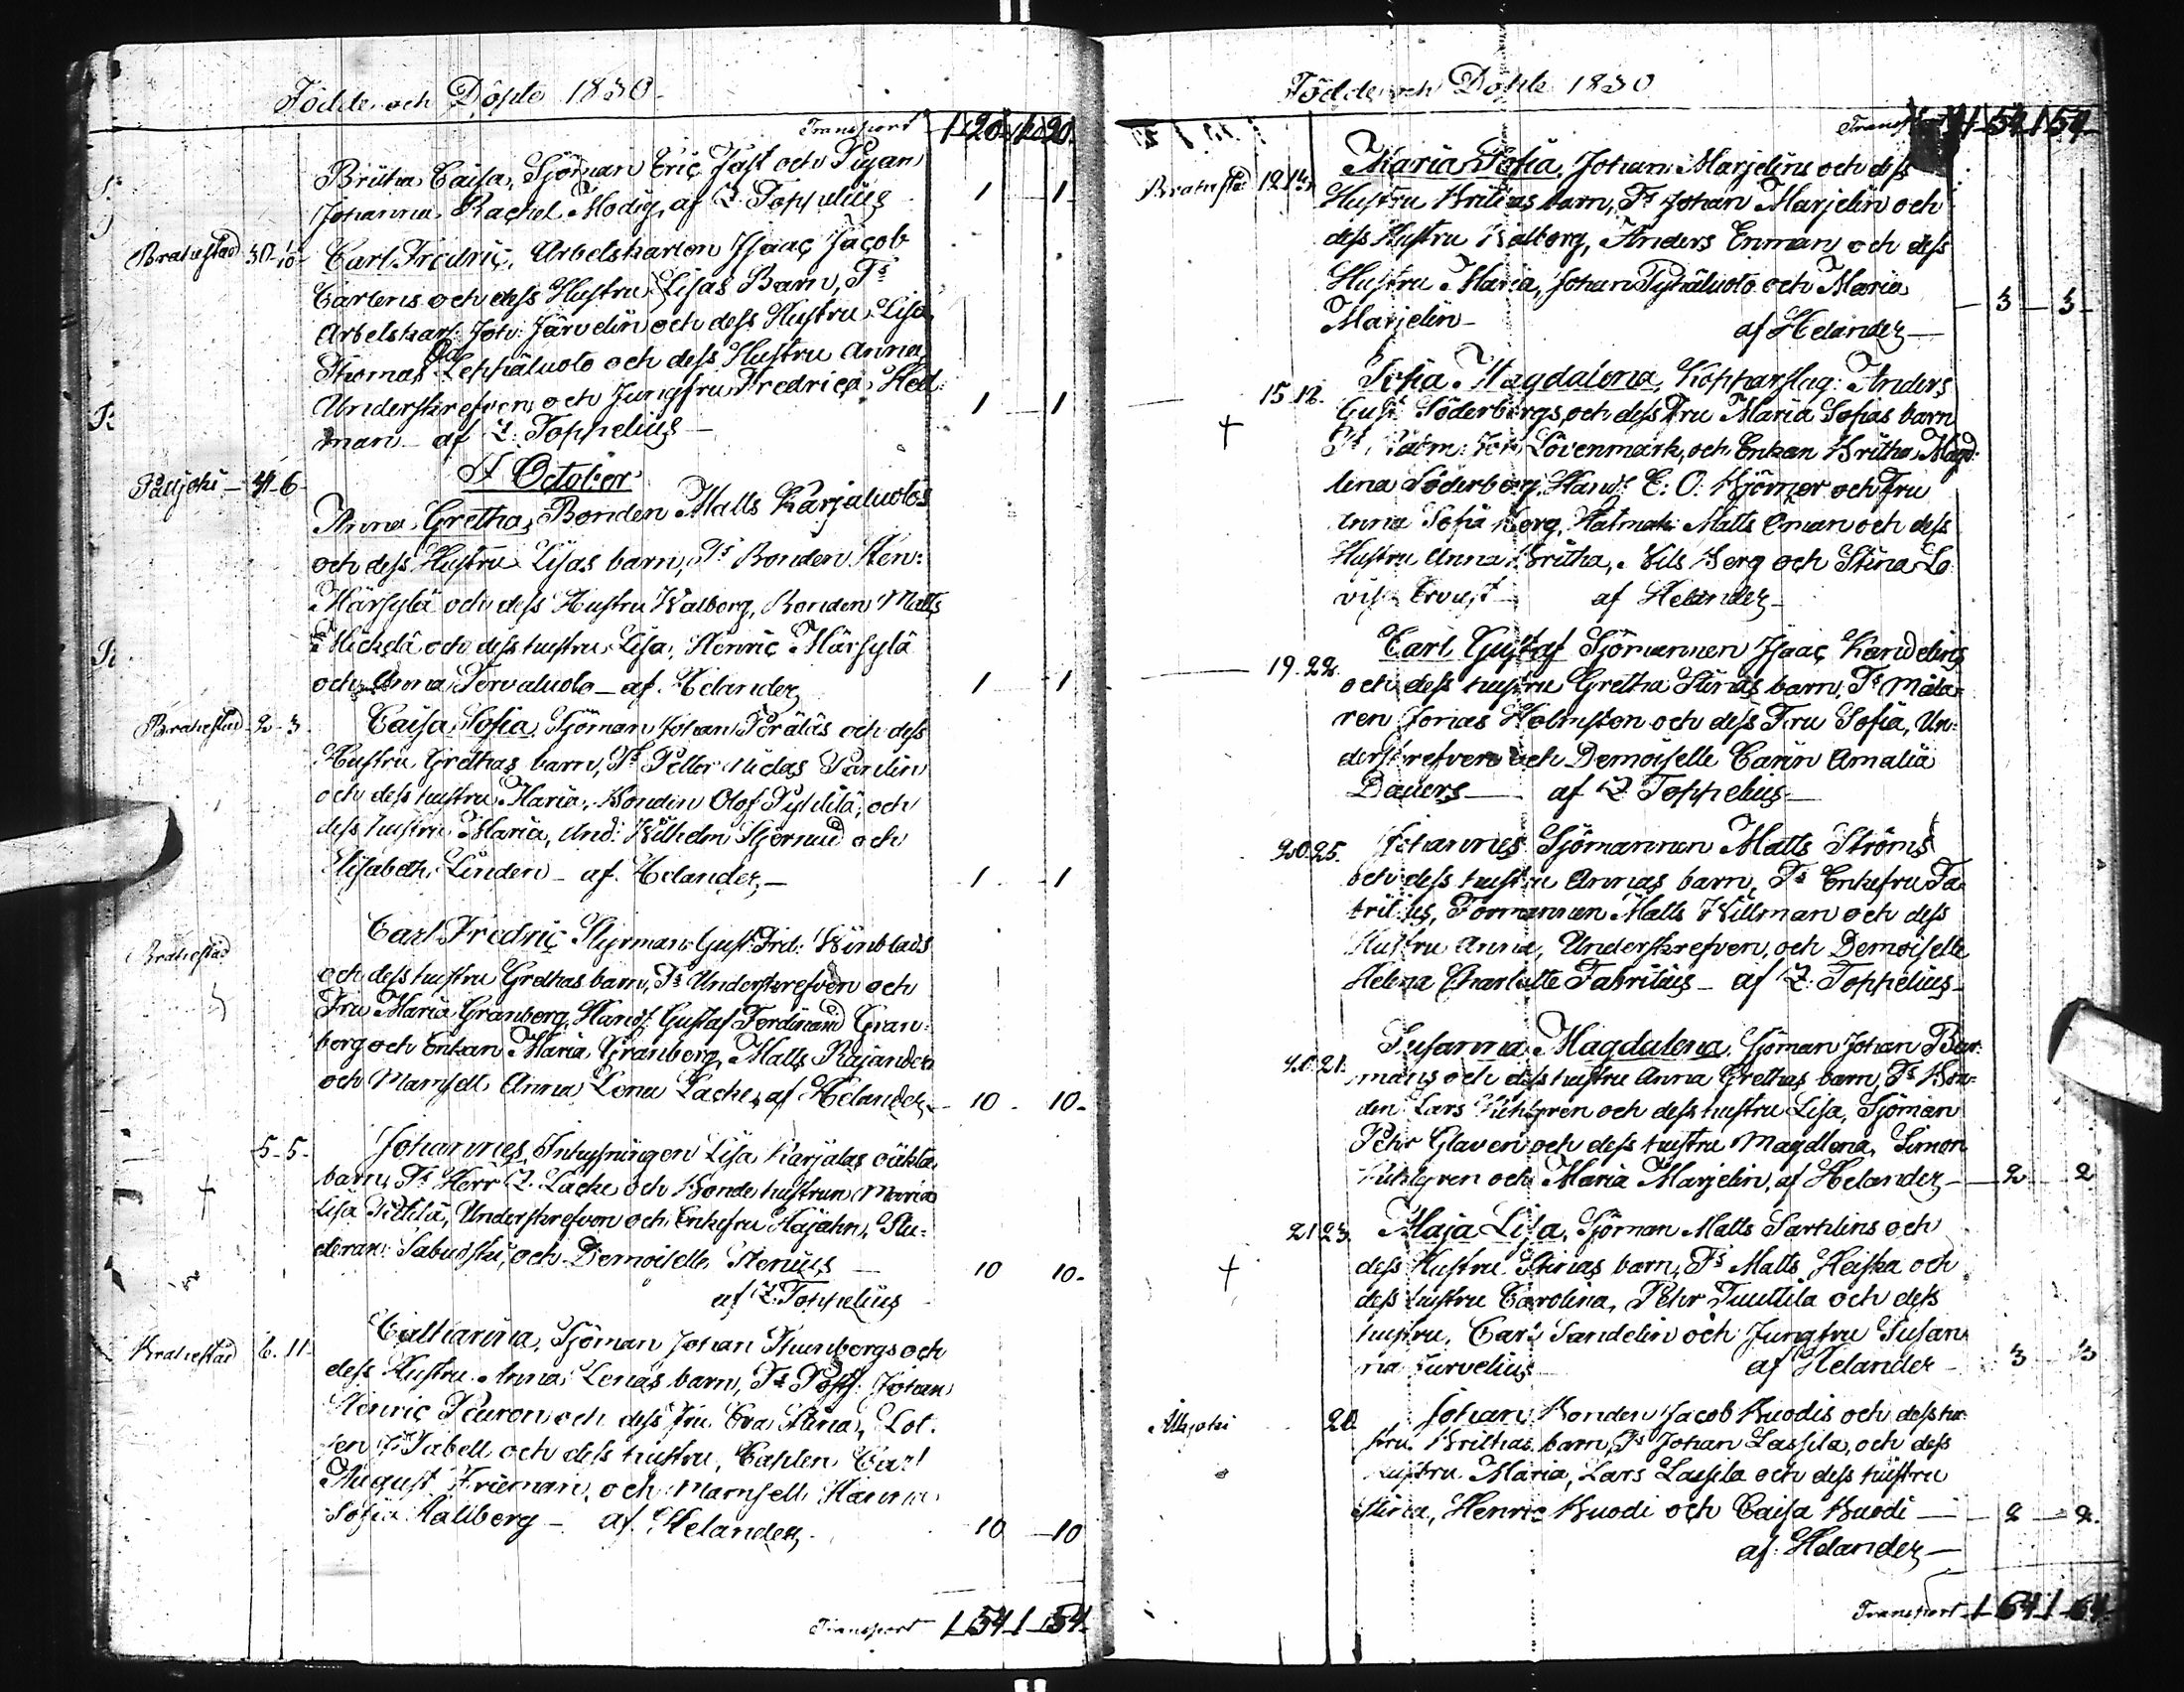 Födde och Döpte 1830
Transport 1 20 1 20
Britha Caisa, Sjöman Eric Fast och Pigan
Johanna Rachel Modig, af Z. Toppelius 1 1
Brahestad 30 1/10 Carl Fredric, Arbetskarlen Isaac Jacob
Carlens och dess Hustru Lisas Barn, Ts
Arbetskarl: Joh: Järvelin och dess Hustru Lisa,
Thomas Leppäluoto och dess Hustru Anna,
Underskrefven och Jungfru Fredrica Hed-
man af Z. Toppelius 1 1
October
Pattjoki 4 6
Anna Gretha, Bonden Matts Karjaluotos
och dess Hustru Lisas barn, Ts Bonden Hen:
Märsylä och dess Hustru Walborg, Bonden Matts
Mickelä och dess hustru Lisa, Henric Märsylä
och Anna Tervaluoto af Helander 1 1
Brahestad 2 3 Caisa Sofia, Sjöman Johan Peräläs och dess
Hustru Grethas barn, Ts Niclas
och dess hustru Maria, Bonden Olof och
dess hustru Maria, And: Wilhelm och
Elisabeth Linden af Helander 1 1
Brahestad Carl Fredric Styrman Gust: Frd: Winblads
och dess hustru Grethas barn, Ts Underskrefven och
Fru Maria Granberg, Hand: Gustaf Ferdinand Gran-
berg och Enkan Maria Granberg, Matts Rajander
och Mamsell Anna Lena Lacke, af Helander 10 10
5 5 Johannes, Inhysningen Lisa Karjalas oäkta
barn, Ts Herr Z. Lacke och Bonde hustrun Maria
Lisa Underskrefven och Enkefru Stu-
deran: och Demoiselle Stenius 10 10
af Z. Toppelius
Brahestad 6. 11 Catharina, Sjöman Johan Thunbergs och
dess Hustru Anna Lenas barn, Ts Johan
Henric och dess Fru Eva Stina, Lot-
sen Tabell och dess hustru, Carl
August Frieman, och Mamsell
Sofia Hallberg af Helander 10 10
Transport 1 54 1 54
Födde och Döpte 1830
Transport 1 54 1 54
Brahestad 12 14 Maria Sofia, Johan Marjelins och dess
Hustru Brithas barn, Ts Johan Marjelin och
dess Hustru Walborg, Anders Enman och dess
Hustru Maria, Johan Pyhäluoto och Maria
Marjelin af Helander 3 3
15 18 Sofia Magdalena, Kopparslag: Anders
Gust: Söderbergs och dess Fru Maria Sofias barn
Ts Lövenmark, och Enkan Britha Magd-
lena Söderberg, Hand: E. O. och Fru
Anna Sofia Berg, Hatmak: Matts Öman och dess
Hustru Anna Britha, Nils Berg och Stina Lo
visa af Helander
19 22 Carl Gustaf Sjömannen Isaac Kandelins
och dess hustru Gretha Stinas barn, Ts Måla-
ren Jonas Holmsten och dess Fru Sofia, Un-
derskrefven och Demoiselle Carin Amalia
Dauers af Z. Toppelius
20 25 Johannes Sjömannen Matts Ströms
och dess hustru Annas barn, Ts Enkefru Fa-
britius, Matts Willman och dess
Hustru Anna, Underskrefven, och Demoiselle
Helena Charlotte Fabritius af Z. Toppelius
20 21 Susanna Magdalena, Sjöman Johan
mans och dess hustru Anna Grethas barn, Ts Bon-
den Lars och dess hustru Lisa, Sjöman
Pehr Glaven och dess hustru Magdlena, Simon
och Maria Marjelin, af Helander 2 2
21 23 Maja Lisa, Sjöman Matts Sarthlins och
dess Hustru Stinas barn, Ts Matts Heiska och
dess hustru Carolina, Pehr Tuuttila och dess
hustru, Carl Sandelin och Jungfru Susan
na af Helander 3 3
20 Johan Bonden Jacob Kuodis och dess hu
stru Brithas barn, Ts Johan Lassila, och dess
Hustru Maria, Lars Lassila och dess hustru
Stina, Henric Kuodi och Caisa Kuodi 2 2
af Helander
Transport 1 64 1 64